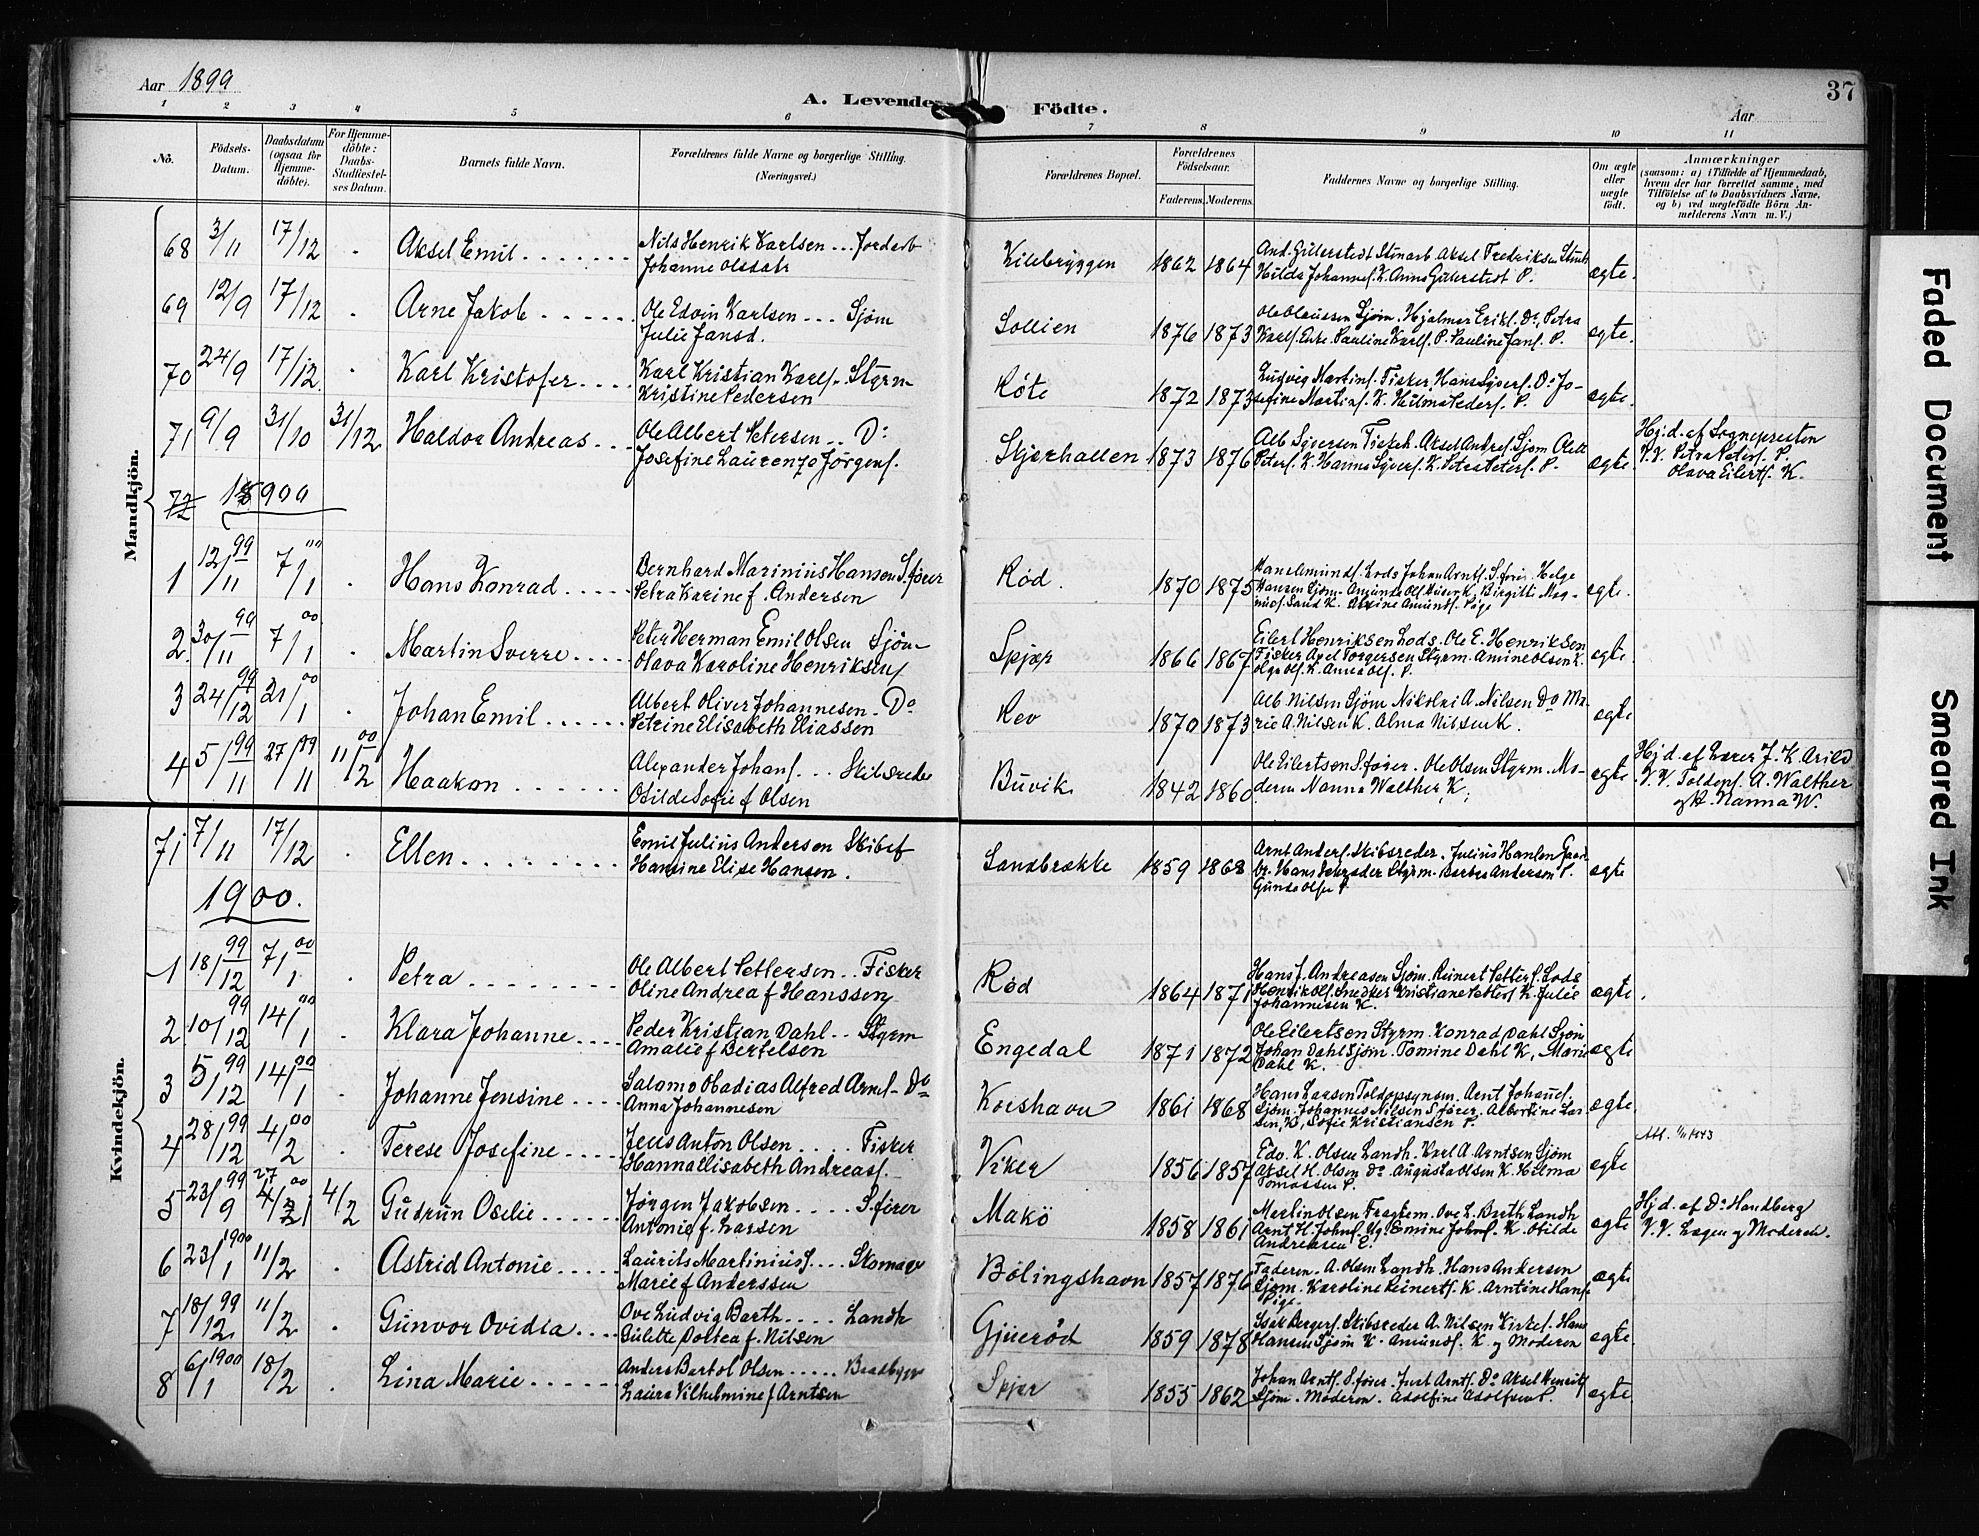 Aar 1899
37
A. Levende Födte.
Aar
1 2 3 4 5 6 7 8 9 10 11
No.
Födsels-Datum.
Daabsdatum (ogsaa for Hjemme-döbte).
For Hjemme-döbte: Daabs-Stadfæstel-ses Datum.
Barnets fulde Navn.
Forældrenes fulde Navne og borgerlige Stilling. (Næringsvei.)
Forældrenes Bopæl.
Forældrenes Födselsaar.
Faderens. Moderens.
Faddernes Navne og borgerlige Stilling.
Om ægte eller uægte födt.
Anmærkninger
(saasom: a) i Tilfælde af Hjemmedaab, hvem der har forrettet samme, med Tilföielse af to Daabsvidners Navne, og b) ved uægtefödte Börn An-melderens Navn m. V.)
Mandkjön.
68 3/11 17/12 Aksel Emil Nils Henrik Karlsen Jordarb
Johanne Olsdatr
Kilebryggen 1862 1864 ægte.
69 12/9 17/12 Arne Jakob Ole Edvin Karlsen Sjöm
Julie Jansd.
Sollien 1876 1873 Ole Olaussen Sjøm. Hjalmar Eriks. Do, Petra
Karls. Enke. Pauline Karls. P. Pauline Jans. P. ægte.
70 24/9 17/12 Karl Kristofer Karl Kristian Karls. Styrm
Kristine Pedersen
Røte 1872 1873 Ludvig Martins. Fisker, Hans Syvers. Do Jo-
sefine Martins. K. Hilma Peders. P. ægte.
71 9/9 31/10 31/12 Haldor Andreas Ole Albert Petersen Do
Josefine Laurenze Jørgens.
Skjærhallen 1873 1876 Alb Syversen Fiskeh. Aksel Andres. Sjøm
Peters. K. Hanna Syvers. K. Petra Peters. P. ægte.
Hj.d. af Sognepresten
V.V. Petra Peters. P.
Olava Eilerts. K.
72 1900
1 12/11 99 7/1 00 Hans Konrad Bernhard Marinius Hansen S.fører
Petra Karine f. Andersen
Rød. 1870 1875 ægte.
2 30/11 99 7/1 00 Martin Sverre Peter Herman Emil Olsen Sjöm
Olava Karoline Henriksen
Spjær 1866 1867 Eilert Henriksen Lods. Ole E. Henriksen
Fisker Axel Torgersen Styrm. Amine Olsen K.
Olga Ols. K. Anna Ols. P. ægte
3 24/12 99 21/1 00 Johan Emil Albert Oliver Johannesen Do
Petrine Elisabeth Eliassen
Rev 1870 1873 Alb Nilsen Sjøm Nikolai A. Nilsen Do Ma-
rie A. Nilsen K. Alma Nilsen K. ægte
4 5/11 99 27/11 99 11/2 00 Haakon Alexander Johans. Skibsreder
Otilde Sofie f Olsen
Buvik 1842 1860 Ole Eilertsen S.fører. Ole Olsen Styrm. Mo-
deren Nanna Walther K. ægte
Hj.d. af Lærer J. K. Arild
V.V. Toldops. A. Walther
og H. Nanna W.
Kvindekjön.
71 7/11 17/12 Ellen Emil Julius Andersen Skibsf
Hansine Elise Hansen.
Sandbrække 1859 1868 ægte
1900.
1 18/12 99 7/1 00 Petra Ole Albert Pettersen Fisker
Oline Andrea f Hanssen
Rød 1864 1871 Hans J. Andreasen Sjøm. Reinert Petters. Lods
Henrik Ols. Snedker Kristiane Petters. K. Julie
Johannesen K. ægte.
2 10/12 99 14/1 00 Klara Johanne Peder Kristian Dahl Styrm
Amalie f Bertelsen
Engedal 1871 1872 Ole Eilertsen Styrm. Konrad Dahl Sjøm
Johan Dahl Sjøm. Tomine Dahl K, Marie
Dahl K. ægte
3 5/12 99 14/1 00 Johanne Jensine Salomo Obadias Alfred Arnes. Do
Anna Johannesen
Korshavn 1861 1868 Hans Larsen Toldopsynsm. Arnt Johans.
Sjøm. Johannes Nilsen S.fører. Albertine Lar-
sen, K, Sofie Kristiansen P. ægte
4 28/12 99 4/2 00 Terese Josefine Jens Anton Olsen Fisker
Hanna Elisabeth Andreass.
Viker 1856 1857 Edv. K. Olsen Landh. Karl A. Arntsen Sjøm
Aksel H. Olsen Do. Augusta Olsen K. Hilma
Tomassen P. ægte
5 23/9 99 4/2 4/2 Gudrun Oselie Jørgen Jakobsen S.fører
Antonie f. Larsen
Makö 1858 1861 Martin Olsen Fragtem. Ove L. Barth Landh
ægte
Andreasen E.
Hj.d. af Dr Handberg
V.V. Lægen og Moderen.
6 23/1 1900 11/2 Astrid Antonie Laurits Martinius J. Skomager
Marie f Anderssen
Bølingshavn 1857 1876 Faderen. A. Olsen Landh. Hans Andersen
Sjøm. Karoline Reinerts. K. Arntine Hans.
Pige. ægte
7 18/12 99 11/2 Gunvor Ovidia Ove Ludvig Barth Landh
Gulette Dortea f. Nilsen
Gjuerød 1859 1878 Hansen Sjøm K. Amunds. K og Moderen ægte
8 6/1 1900 18/2 Lina Marie Anders Bertol Olsen Baadbygger
Laura Vilhelmine f Arntsen
Spjær 1855 1862 Johan Arnts. S.fører. Just Arnts. Do. Aksel Henriks
Sjøm. Moderen. Adolfine Adolfsen P. ægte.
Faded Document
Smeared Ink